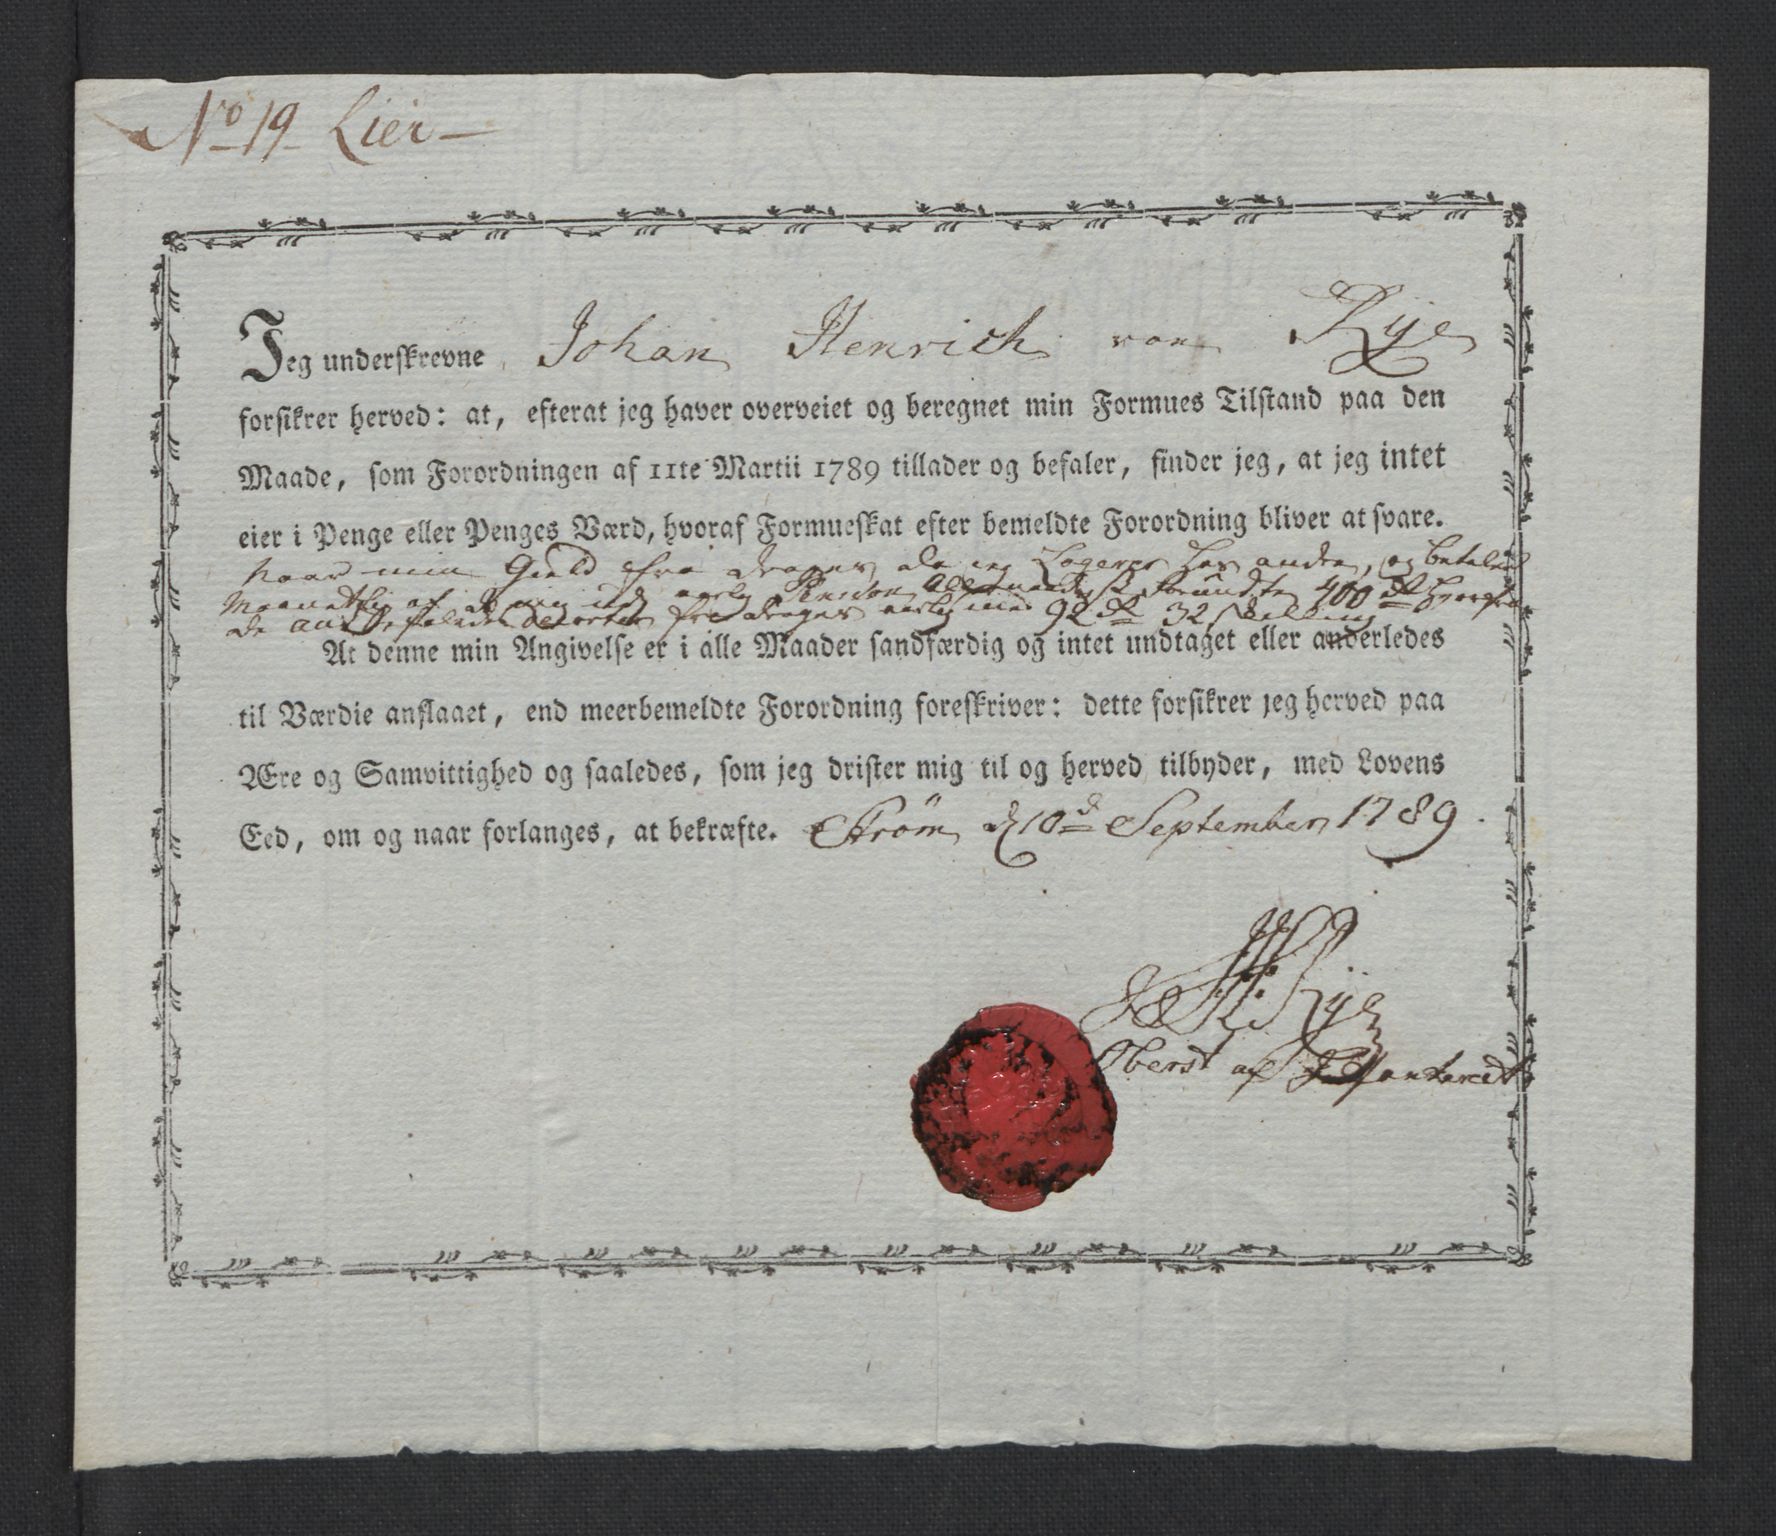 No 19 Lier
Jeg underskrevne Johan Henrich von Rÿe
forsikrer herved: at, efterat jeg haver overveiet og beregnet min Formues Tilstand paa den
Maade, som Forordningen af 11te Martii 1789 tillader og befaler, finder jeg, at jeg intet
eier i Penge eller Penges Værd, hvoraf Formueskat efter bemeldte Forordning bliver at svare.
naar min Gield fra drages da jeg Logerer hos andre, og betaler
Maanetlig af aarlig Pension 400
fra drages aarlig 92 32 skilling
At denne min Angivelse er i alle Maader sandfærdig og intet undtaget eller anderledes
til Værdie anslaaet, end meerbemeldte Forordning foreskriver: dette forsikrer jeg herved paa
Ære og Samvittighed og saaledes, som jeg drister mig til og herved tilbyder, med Lovens
Eed, om og naar forlanges, at bekræfte. Strøm d 10d September 1789.
J H v: Rÿe
Oberst af Infanteriet